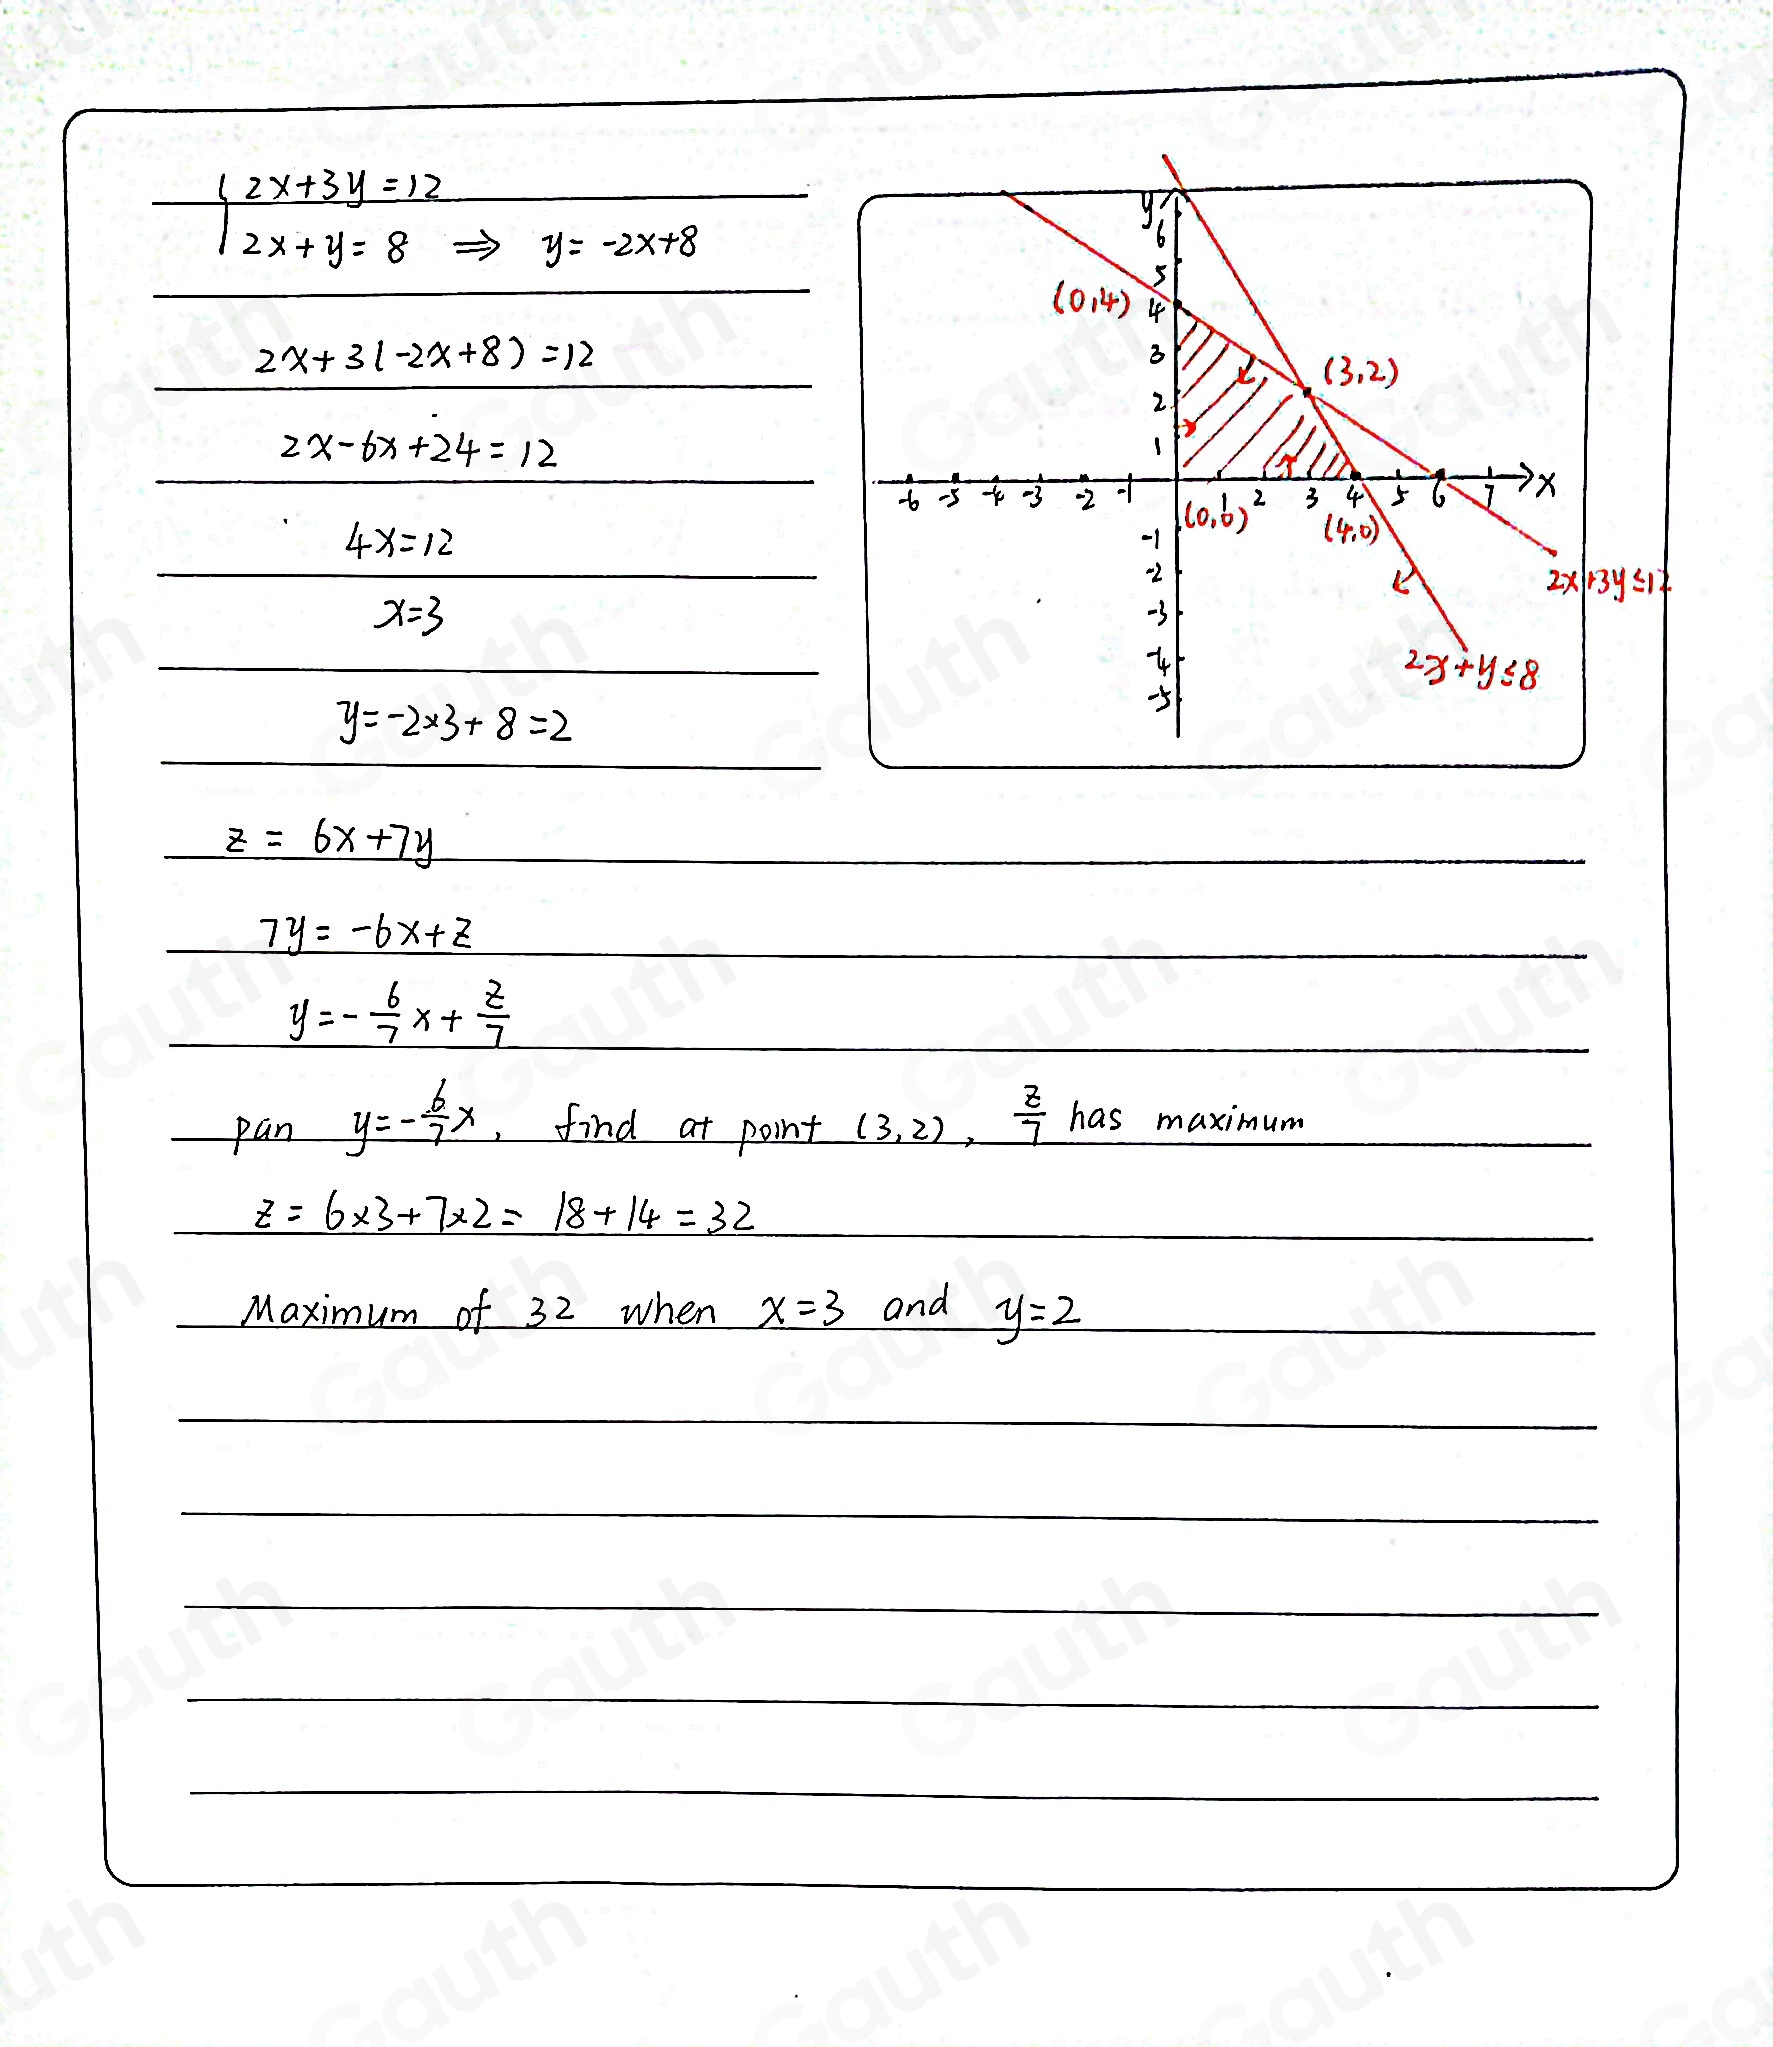 2x+3y=12
2x+y=8 ⇒ y=-2x+8
2x+3(-2x+8)=12
2x-6x+24=12
4x=12
x=3
y=-2×3+8=2
y
6
5
(0,4) 4
3
(3,2)
2
1
-6 -5 -4 -3 -2 -1 1 2 3 4 5 6 7 x
(0,0) (4,0)
-1
-2
2x+3y≤12
-3
-4
2x+y≤8
-5
z = 6x+7y
7y=-6x+z
y=-6/7x+z/7
pan y=-6/7x, find at point (3,2), z/7 has maximum
z=6×3+7×2=18+14=32
Maximum of 32 when x=3 and y=2
Gauth